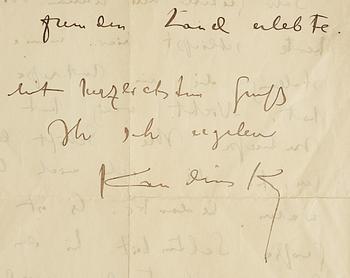 fremden Land erlebte.
mit herzlichstem Gruß
Ihr sehr ergeben
Kandinsky